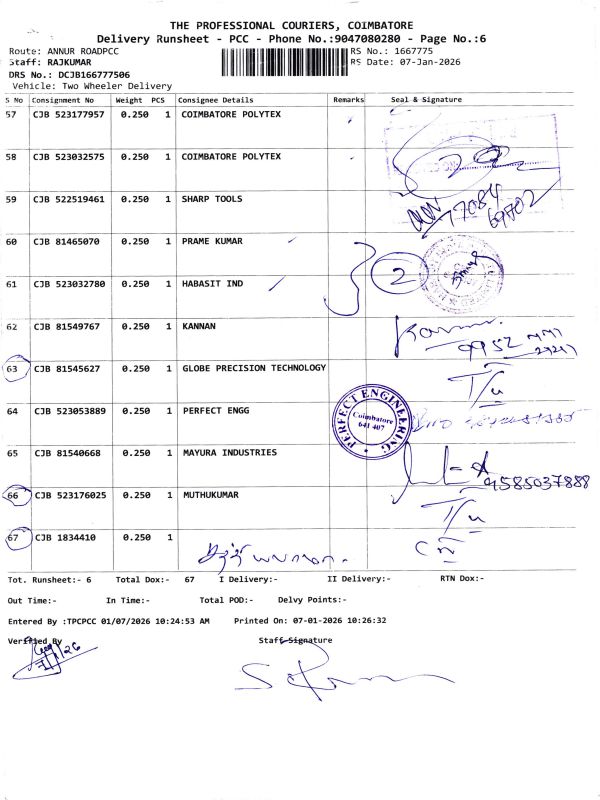 THE PROFESSIONAL COURIERS, COIMBATORE
Delivery Runsheet - PCC - Phone No.:9047080280 - Page No.:6
Route: ANNUR ROADPCC RS No.: 1667775
Staff: RAJKUMAR RS Date: 07-Jan-2026
DRS No.: DCJB166777506
Vehicle: Two Wheeler Delivery
S No Consignment No Weight PCS Consignee Details Remarks Seal & Signature
57 CJB 523177957 0.250 1 COIMBATORE POLYTEX
58 CJB 523032575 0.250 1 COIMBATORE POLYTEX
2
59 CJB 522519461 0.250 1 SHARP TOOLS
77084
60 CJB 81465070 0.250 1 PRAME KUMAR
2
61 CJB 523032780 0.250 1 HABASIT IND
62 CJB 81549767 0.250 1 KANNAN
9952
63 CJB 81545627 0.250 1 GLOBE PRECISION TECHNOLOGY
T/u
64 CJB 523053889 0.250 1 PERFECT ENGG
PERFECT ENGINEERING
Coimbatore
641 407
65 CJB 81540668 0.250 1 MAYURA INDUSTRIES
9585037888
66 CJB 523176025 0.250 1 MUTHUKUMAR
T/u
67 CJB 1834410 0.250 1
Tot. Runsheet:- 6 Total Dox:- 67 I Delivery:- II Delivery:- RTN Dox:-
Out Time:- In Time:- Total POD:- Delvy Points:-
Entered By :TPCPCC 01/07/2026 10:24:53 AM Printed On: 07-01-2026 10:26:32
Verified By Staff Signature